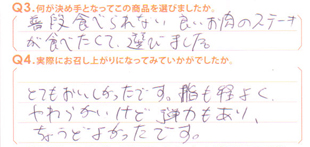 Q3.何が決め手となってこの商品を選びましたか。
普段食べられない良いお肉のステーキ
が食べたくて、選びました。
Q4.実際にお召し上がりになってみていかがでしたか。
とてもおいしかったです。脂も程よく、
やわらかいけど弾力もあり、
ちょうどよかったです。